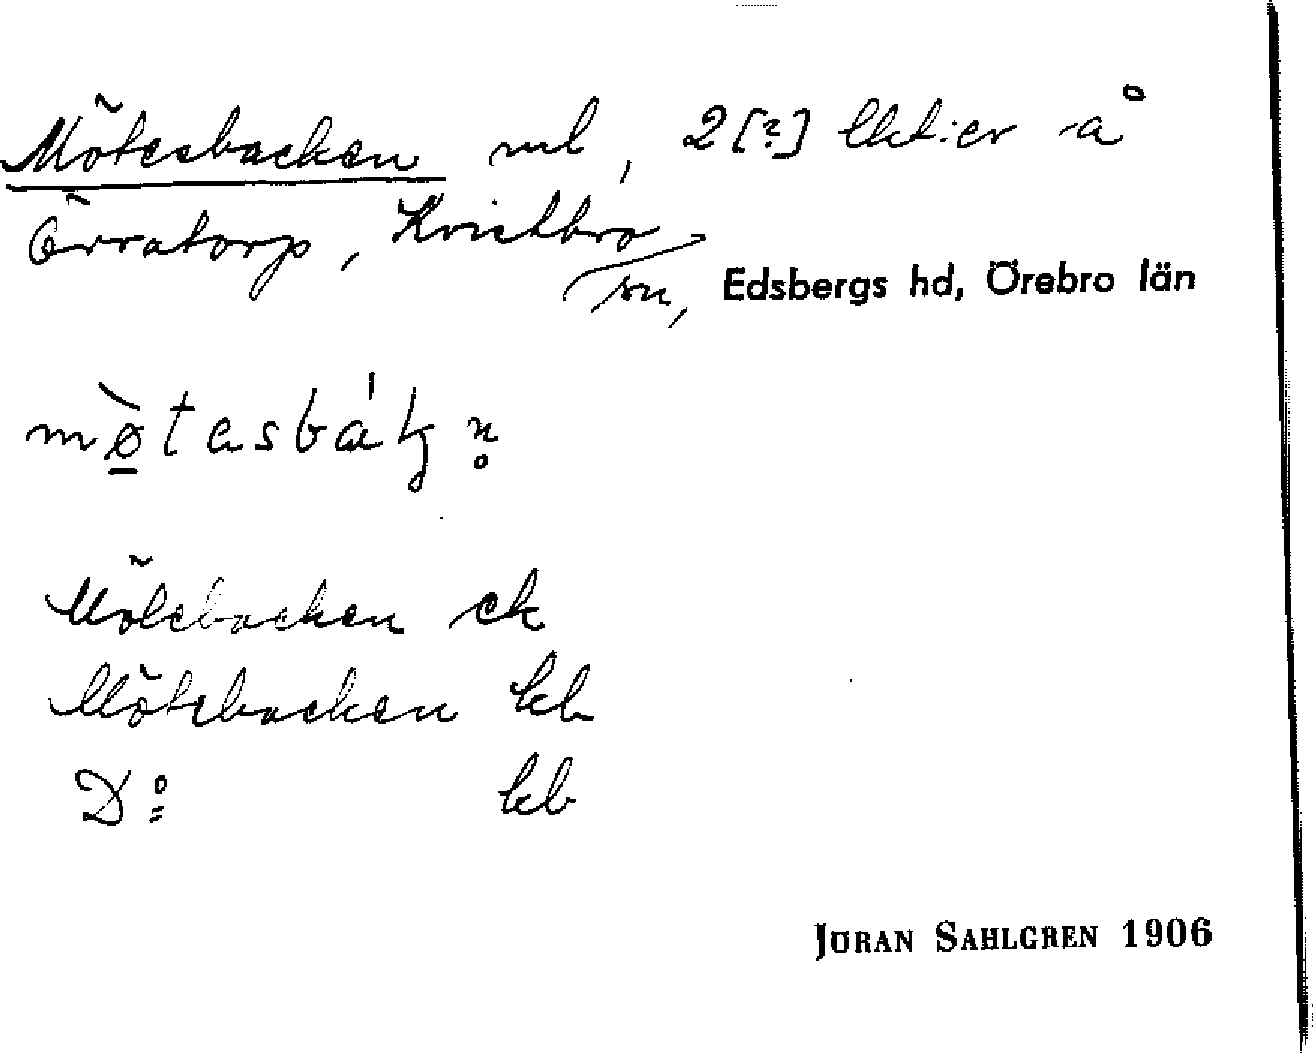 Mötesbacken ml, 2[?] lht:er å
Örratorp, Kvistbro
sn, Edsbergs hd, Örebro län
mø̀tasbák̡n̥
Mötebacken ek
Mötebacken kb
D:o kb
JÖRAN SAHLGREN 1906